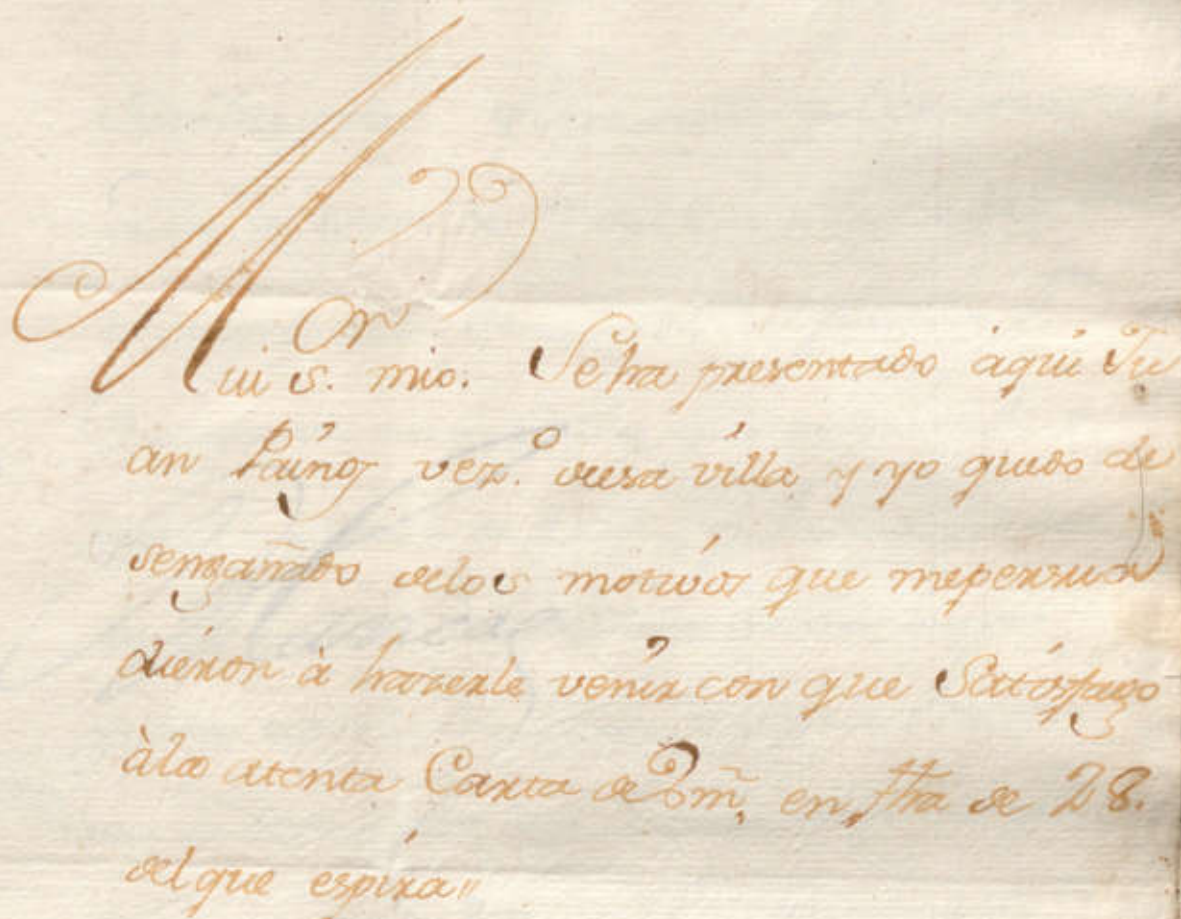 Mui S.or mio. Se ha presentado aqui Ju
an Paínos vez.o desa villa y yo quedo de
sengañado delos motivos que mepersua
diéron à hazerle venir con que Satisfago
àla atenta Carta de Vm, en fha de 28.
del que espira"